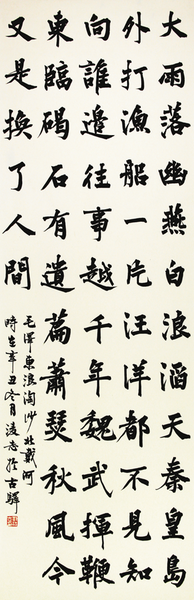 大雨落幽燕白浪滔天秦皇島
外打漁船一片汪洋都不見知
向誰邊往事越千年魏武揮鞭
東臨碣石有遺篇蕭瑟秋風今
又是換了人間
毛澤東浪淘沙北戴河
時在辛丑冬月凌志於古驛